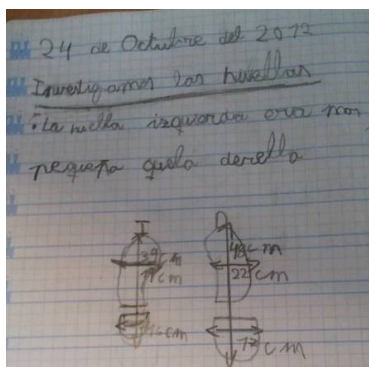 24 de Octubre del 2012
Investigamos las huellas
La huella izquierda era mas
pequeña que la derella
I D
39 cm 48 cm
19 cm 22 cm
cm 12 cm